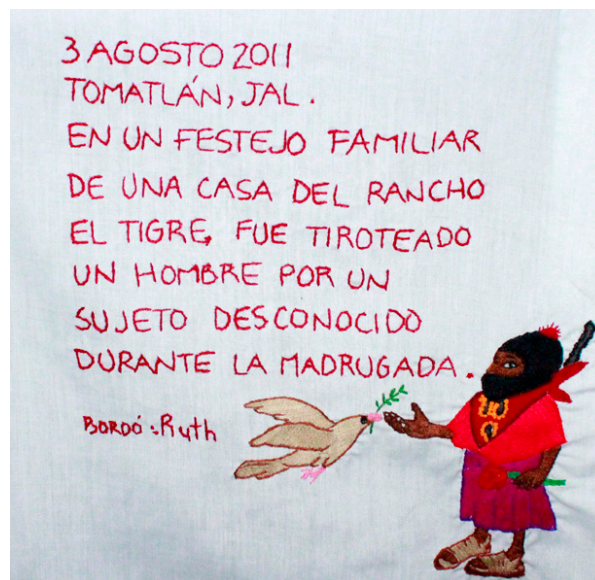 3 AGOSTO 2011
TOMATLÁN, JAL.
EN UN FESTEJO FAMILIAR
DE UNA CASA DEL RANCHO
EL TIGRE, FUE TIROTEADO
UN HOMBRE POR UN
SUJETO DESCONOCIDO
DURANTE LA MADRUGADA.
BORDÓ: Ruth